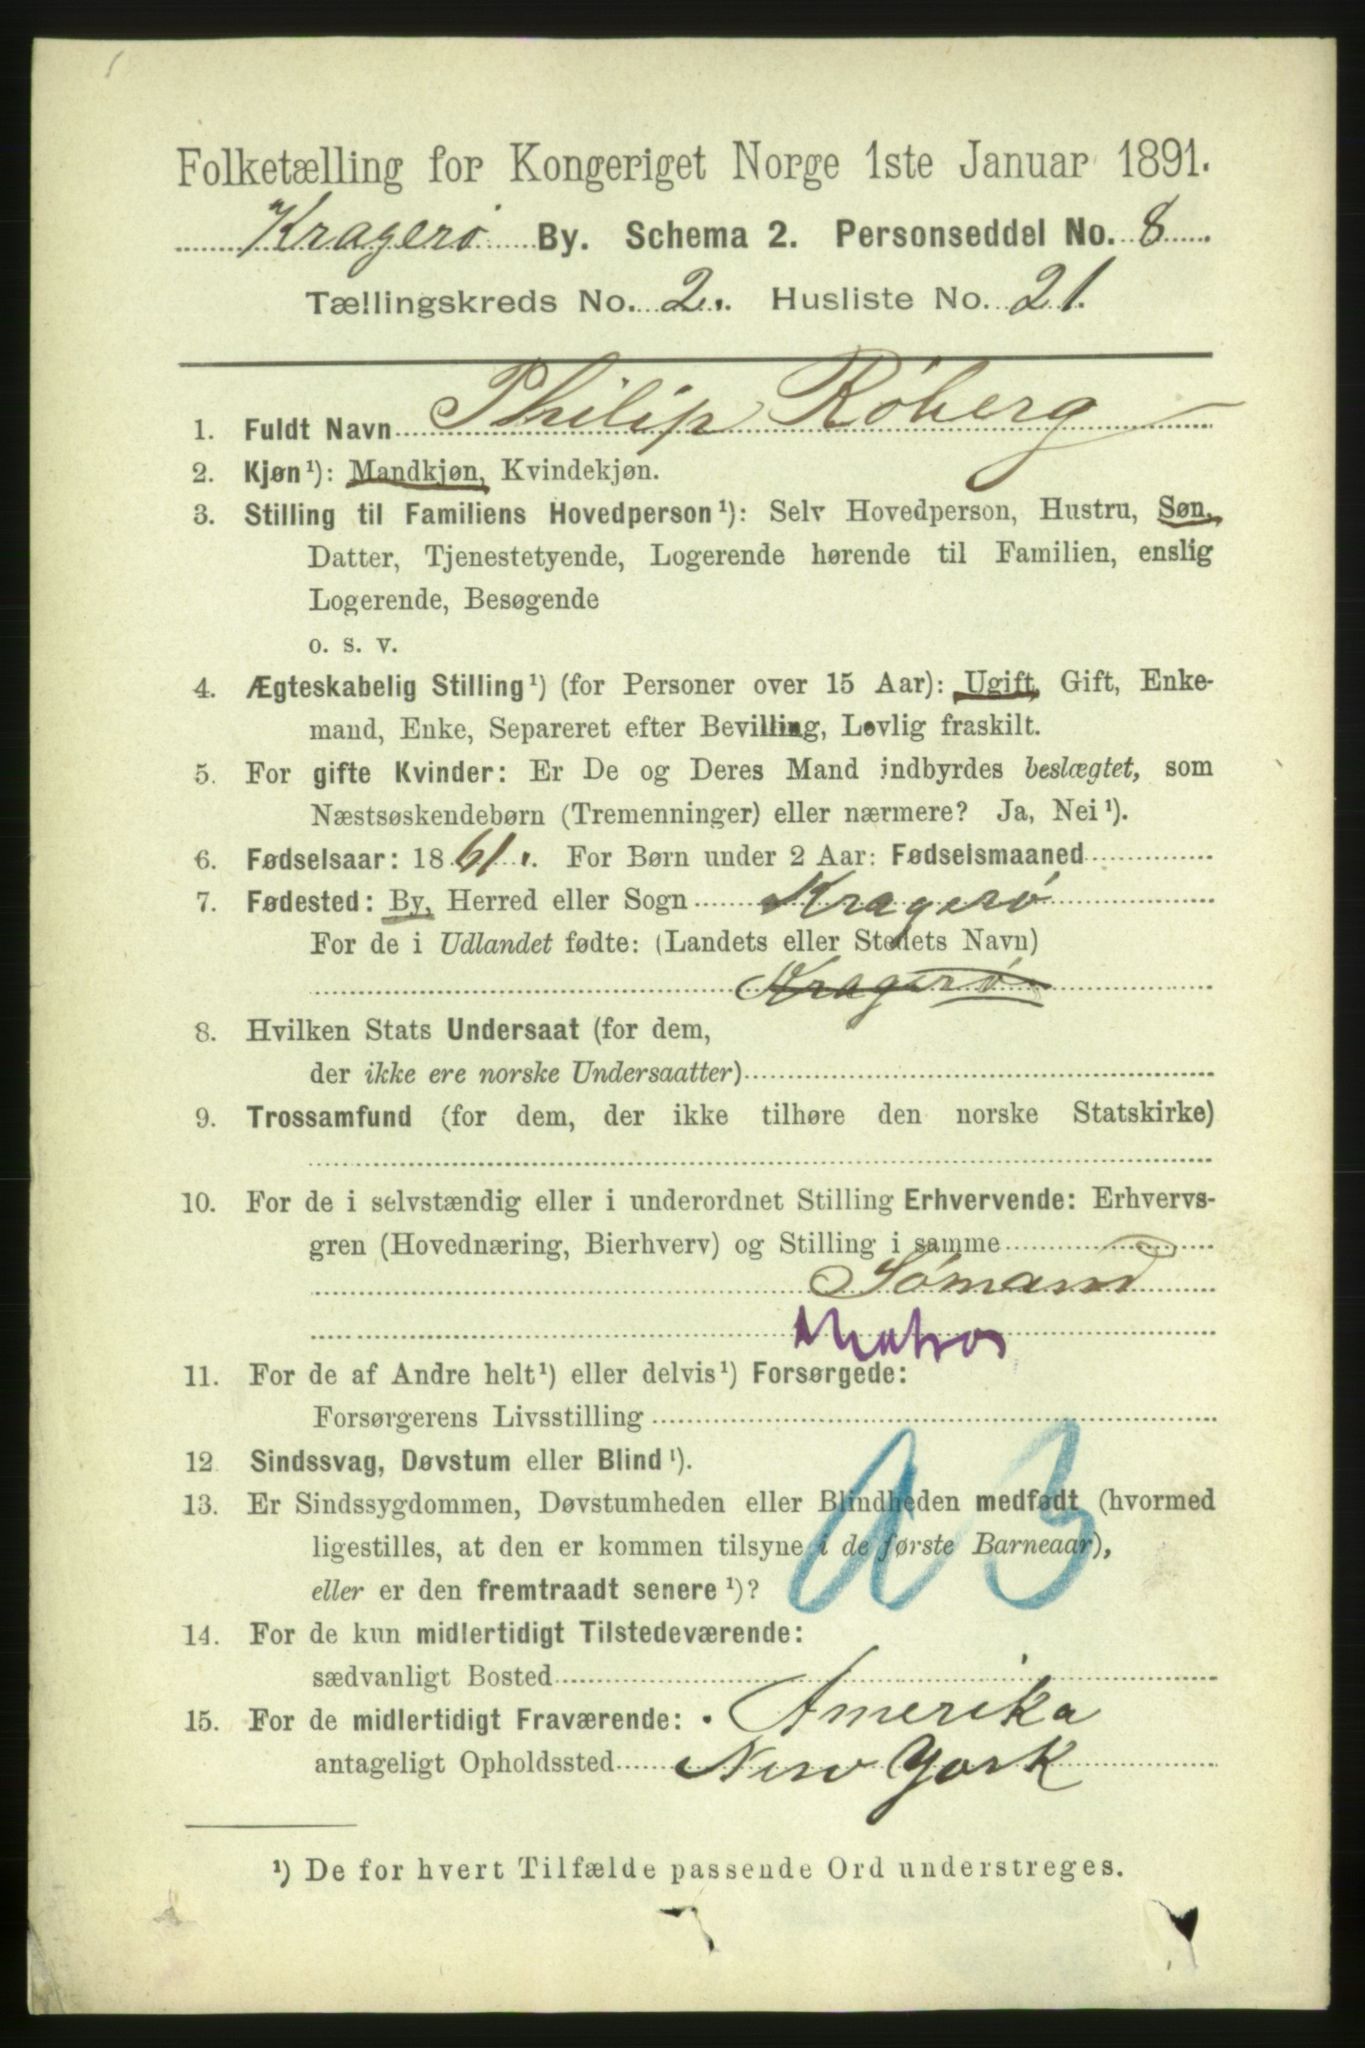 Folketælling for Kongeriget Norge 1ste Januar 1891.
Kragerø By. Schema 2. Personseddel No. 8
Tællingskreds No. 2. Husliste No. 21.
1. Fuldt Navn Philip Røberg
2. Kjøn¹): Mandkjøn, Kvindekjøn.
3. Stilling til Familiens Hovedperson¹): Selv Hovedperson, Hustru, Søn,
Datter, Tjenestetyende, Logerende hørende til Familien, enslig
Logerende, Besøgende
o. s. v.
4. Ægteskabelig Stilling¹) (for Personer over 15 Aar): Ugift, Gift, Enke-
mand, Enke, Separeret efter Bevilling, Lovlig fraskilt.
5. For gifte Kvinder: Er De og Deres Mand indbyrdes beslægtet, som
Næstsøskendebørn (Tremenninger) eller nærmere? Ja, Nei¹).
6. Fødselsaar: 1861. For Børn under 2 Aar: Fødselsmaaned
7. Fødested: By, Herred eller Sogn Kragerø
For de i Udlandet fødte: (Landets eller Stedets Navn)
Kragerø
8. Hvilken Stats Undersaat (for dem,
der ikke ere norske Undersaatter)
9. Trossamfund (for dem, der ikke tilhøre den norske Statskirke)
10. For de i selvstændig eller i underordnet Stilling Erhvervende: Erhvervs-
gren (Hovednæring, Bierhverv) og Stilling i samme
Sømand
Matros
11. For de af Andre helt¹) eller delvis¹) Forsørgede:
Forsørgerens Livsstilling
12 Sindssvag, Døvstum eller Blind¹).
13. Er Sindssygdommen, Døvstumheden eller Blindheden medfødt (hvormed
ligestilles, at den er kommen tilsyne i de første Barneaar),
eller er den fremtraadt senere¹)?
14. For de kun midlertidigt Tilstedeværende:
sædvanligt Bosted
15. For de midlertidigt Fraværende: Amerika
antageligt Opholdssted New York
¹) De for hvert Tilfælde passende Ord understreges.